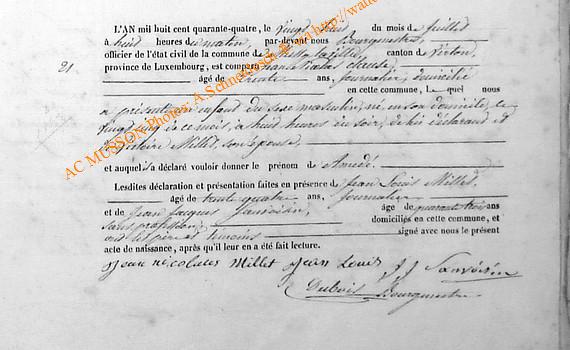 L'AN mil huit cent quarante-quatre, le vingt du mois de juillet
à huit heures du matin, par-devant nous Bourguemestre
officier de l'état civil de la commune de canton de Virton,
21
province de Luxembourg, est comparu
âgé de trente ans, journalier, domicilié
en cette commune, Lequel nous
a présenté un enfant du sexe masculin, né, en son domicile, le
vingt cinq de ce mois, à huit heures du soir, de lui déclarant et
Millet, son épouse,
et auquel il a déclaré vouloir donner le prénom de Amédé.
Lesdites déclaration et présentation faites en présence de Jean Louis Millet
âgé de trente quatre ans, journalier
et de Jean Jacques Sanvoisin, âgé de quarante trois ans
sans profession, domiciliés en cette commune, et
ont les père et témoins signé avec nous le présent
acte de naissance, après qu'il leur en a été fait lecture.
Jean nicolaces Millet Jean Louis JJ Sanvoisin
Dubois Bourguemestre
AC MUSSON Photos: A.Schne